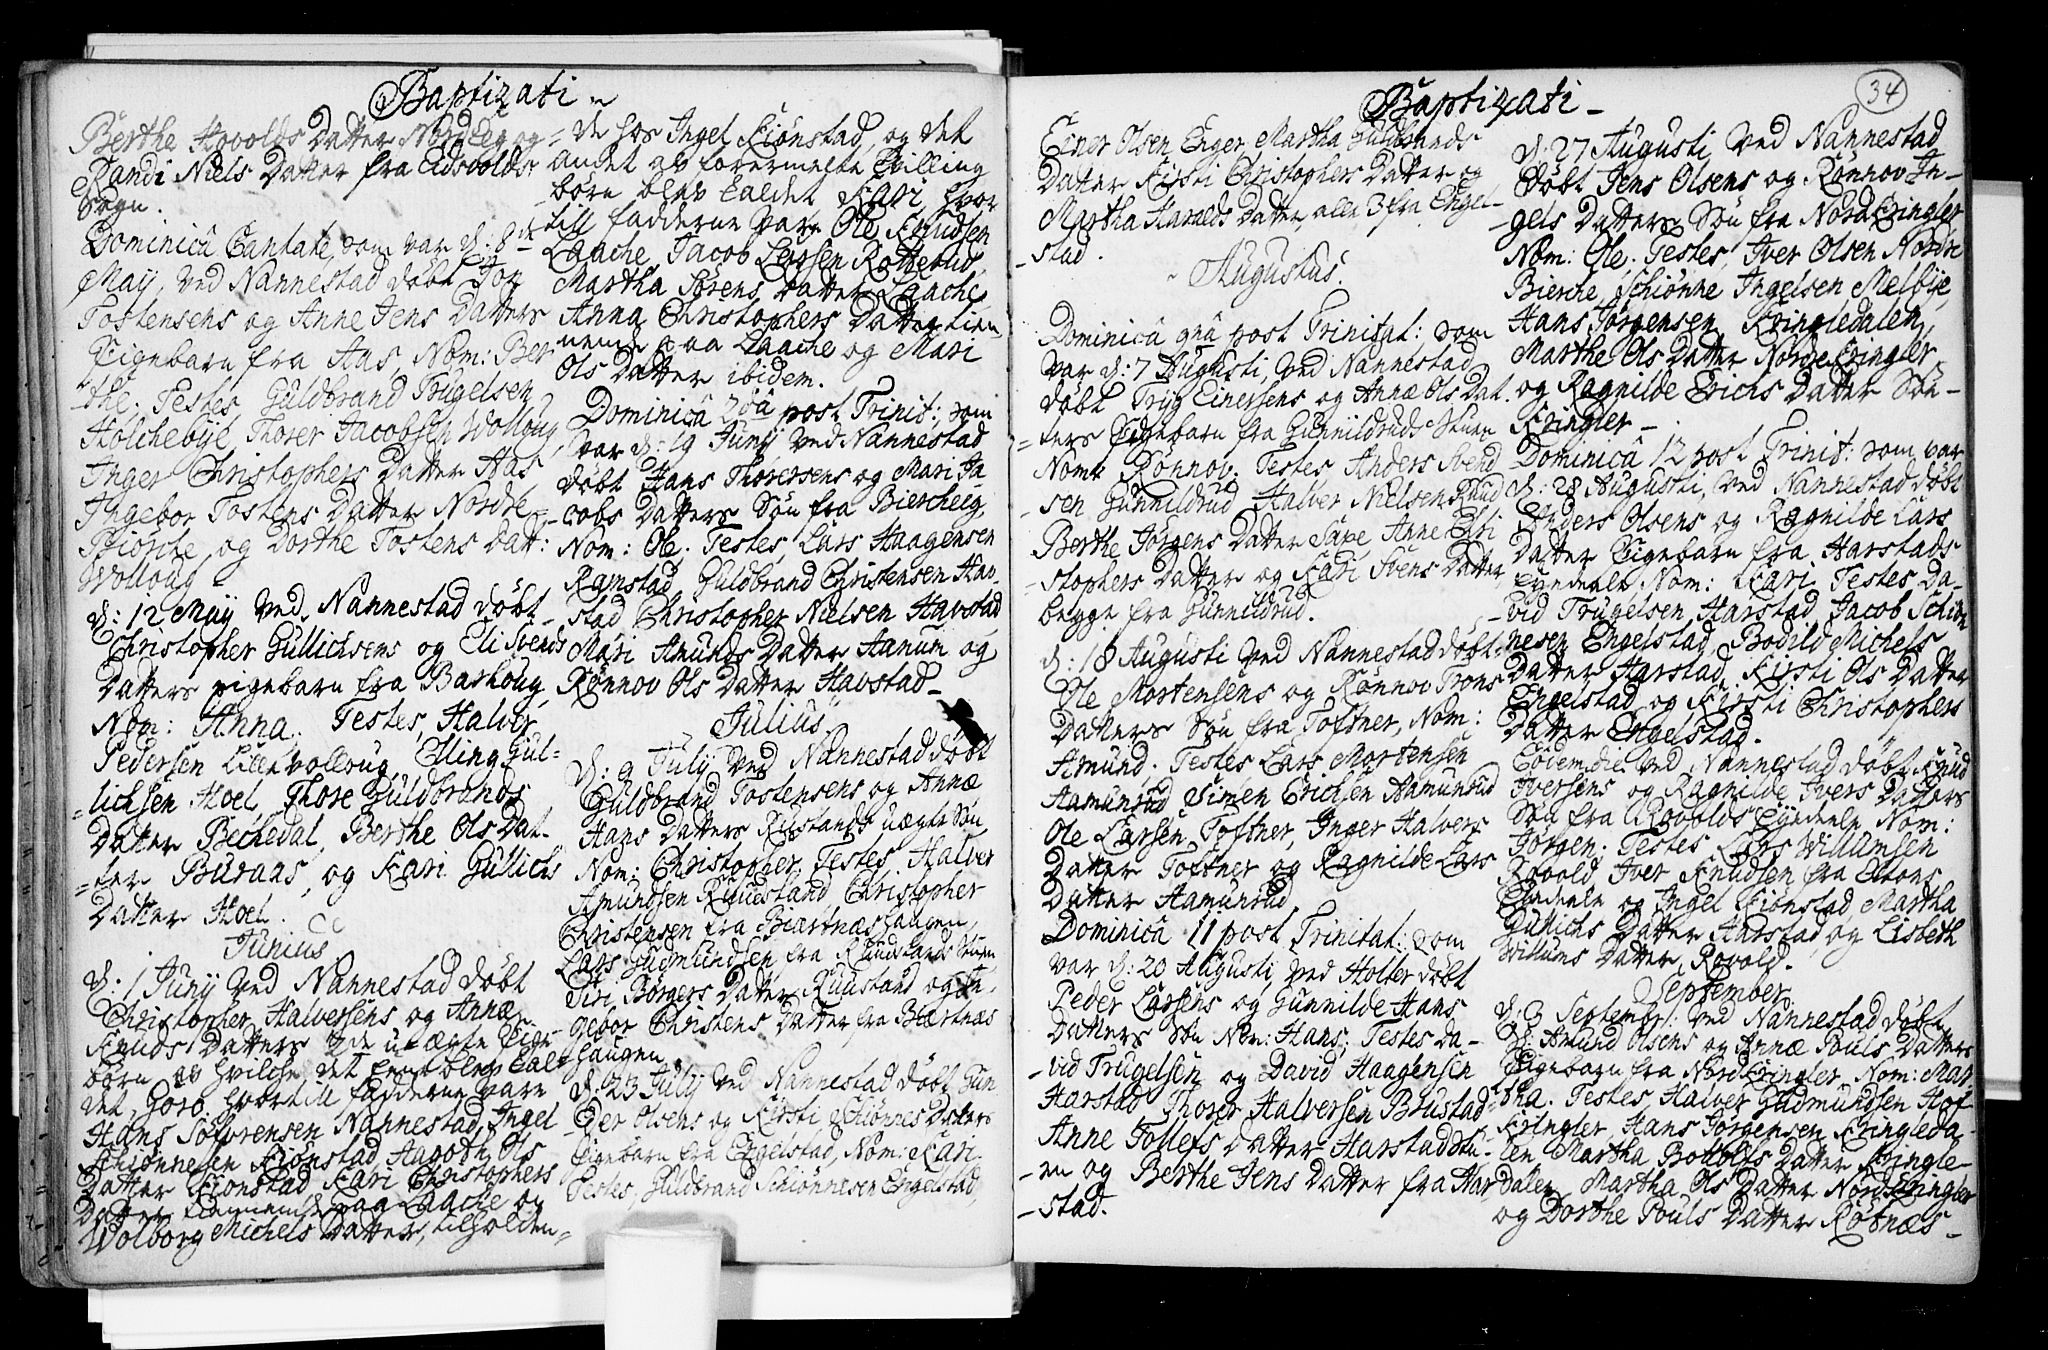 Baptizati
Berthe Hovolds Datter Nordeeg og
Randi Niels Datter fra Eidsvolds
Sogn.
Dominicâ Cantate, som var d: 8de
Maij, ved Nannestad døbt Jon
Tostensens og Anne Jens Datters
Pigebarn fra Aas, Nom: Ber
-the. Testes, Guldbrand Trugelsen
Holchebÿe, Thorer Jacobsen Wolloug,
Inger Christophers Datter Aas
Ingebor Tostens Datter Nordre
Biørche og Dorthe Tostens Datt:
Wolloug
d: 12 Maij ved Nannestad døbt
Christopher Gullichsens og Eli Svends
Datters pigebarn fra Bashoug,
Nom: Anna. Testes, Halver
Pedersen Lille volloug, Elling Gul=
=lichsen Moel, Thore Guldbrands
Datter Bechedal, Berthe Ols Dat-
=ter Buraas, og Kari Gullichs
Datter Moel.
Junius
d: 1 Junij ved Nannestad døbt
Christopher Halversens og Annæ
Knuds Datters 2de uægte Pige
børn af hvilche det eene blev Cal-
det, Goro. hvortill fadderne vare
Hans Søfrensen Nannestad, Ingel
Schiønnesen Kiønstad Aagoth Ols
Datter Kiønstad Kari Christophers
Datter tiennende paa Laache og
Wolborg Michels Datter, tilholden=
=de hos Ingel Kiønstad, og det
andet af forermelte Tvilling
børn blev kaldet Kari, hvor
till fadderne vare Ole Knudsen
Laache, Jacob Larsen Rotterud,
Martha Sørens Datter Laache
Anna Christophers Datter tien-
nende paa Laache og Mari
Ols Datter ibidem.
Dominicâ 2dâ post Trinit: som
var d: 19 Junij ved Nannestad
døbt Hans Thorersens og Mari Ja
-cobs Datters Søn fra Biercheeg,
Nom: Ole. Testes, Lars Haagensen
Ramstad, Guldbrand Christensen Hav-
stad Christopher Nielsen Havstad
Mari Amunds Datter Aanum og
Rønnov Ols Datter Havstad-
Julius
d: 9 Julij ved Nannestad døbt
Guldbrand Tostensens og Annæ
Hans Datters Ruustands uægte Søn
Nom: Christopher. Testes, Halver
Amundsen Ruustand, Christopher
Christensen fra Biertnæs haugen,
Lars Gudmundsen fra Ruustands
Siri Børgers Datter Ruustand og In-
gebor Christens Datter fra Biertnæs
haugen.
d: 23 Julij ved Nannestad døbt Gun
-der Olsens og Kirsti Schiønnes Datters
Pigebarn fra Engelstad, Nom: Kari.
Testes, Guldbrand Schiønnesen Engelstad,
34
Baptizati
Einer Olsen Enger, Martha Guldbrands
Datter Kirsti Christophers Datter og
Martha Haralds Datter, alle 3 fra Engel-
-stad.
Augustus.
Dominicâ 9nâ post Trinitat: som
var d: 7 Augusti, ved Nannestad
døbt Tryg Einersens og Annæ Ols Dat.
=ters Pigebarn fra Gunnildruds
Nom: Rønnov. Testes Anders Svend
-sen Gunnildrud Halver Nielsen Ruud
Berthe Jørgens Datter Anne Chri
-stophers Datter og Kari Svens Datter
begge fra Gunnildrud.
d: 18 Augusti ved Nannestad døbt
Ole Mortensens og Rønnov Trons
Datters Søn fra Toftner, Nom:
Amund. Testes Lars Mortensen
Aamunrud Simen Erichsen Aamunrud
Ole Larsen Toftner, Inger Halvers
Datter Toftner og Ragnilde Lars
Datter Aamunrud.
Dominicâ 11 post Trinitat: som
var d: 20 Augusti, ved Holter døbt
Peder Larsens og Gunnilde Hans
Datters Søn Nom: Hans; Testes Da-
-vid Trugelsen og David Haagensen
Harstad Thorer Halversen Brustad
Anne Tollefs Datter Harstadstu-
-en og Berthe Jens Datter fra Har
-stad.
d: 27 Augusti, ved Nannestad
døbt Jens Olsens og Rønnov In-
-gels Datters Søn fra Nord Kringler
Nom: Ole. Testes, Iver Olsen Nordre
Bierche, Schiønne Ingelsen Melbÿe,
Hans Jørgensen Kringledalen,
Marthe Ols Datter Nordre Kringler
og Ragnilde Erichs Datter Søn-
Kringler-
Dominicâ 12 post Trinit: som var
d: 28 Augusti, ved Nannestad døbt
Anders Olsens og Ragnilde Lars
Datter Pigebarn fra Harstads
Eyedeele, Nom: Kari. Testes Da-
-vid Trugelsen, Harstad, Jacob Schiøn
nesen Engelstad, Bodild Michels
Datter Harstad, Kirsti Ols Datter
Engelstad og Kirsti Christophers
Datter Engelstad.
Eodem die ved Nannestad døbt Knud
Iversens og Ragnilde Ivers Datters
Søn fra Rovolds Eyedeele Nom:
Jørgen. Testes Lars Willumsen
Rovold Iver Knudsen fra
Eyedeele og Ingel Kiønstad, Martha
Gullichs Datter Harstad, og Lisbeth
Willums Datter Rovold.
September
d: 3 Septembr: ved Nannestad døbt
Amund Olsens og Annæ Pouls Datters
Pigebarn fra Nord Kringler, Nom: Mar
tha. Testes Halver Gudmundsen Hof
Kringler, Hans Jørgensen Kringleda-
len Martha Botolfs Datter Kringle-
dalen, Martha Ols Datter Nord Kringler
og Dorthe Pouls Datter Røtnæs-